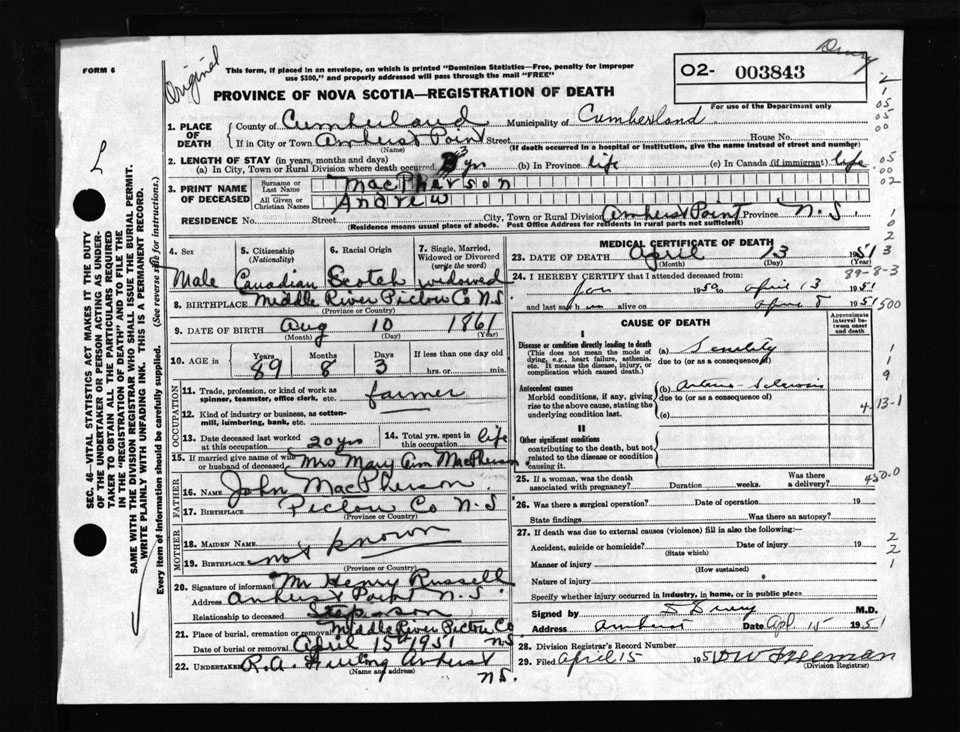 FORM 6
Original
This form, if placed in an envelope, on which is printed "Dominion Statistics—Free, penalty for improper
use $300," and properly addressed will pass through the mail "FREE"
O2- 003843
For use of the Department only
PROVINCE OF NOVA SCOTIA—REGISTRATION OF DEATH
1. PLACE OF DEATH County of Cumberland Municipality of Cumberland
If in City or Town Amherst Point Street House No.
(Name) (If death occurred in a hospital or Institution, give the name instead of street and number)
2. LENGTH OF STAY (in years, months and days)
(a) In City, Town or Rural Division where death occurred 3 yrs (b) In Province life (c) In Canada (if immigrant) life
3. PRINT NAME OF DECEASED Surname or Last Name MacPherson
All Given or Christian Names Andrew
RESIDENCE No. Street City, Town or Rural Division Amherst Point Province N.S.
(Residence means usual place of abode. Post Office Address for residents in rural parts not sufficient)
4. Sex 5. Citizenship (Nationality) 6. Racial Origin 7. Single, Married, Widowed or Divorced (write the word)
Male Canadian Scotch widowed
8. BIRTHPLACE Middle River Pictou Co N.S
(Province or Country)
9. DATE OF BIRTH Aug 10 1861
(Month) (Day) (Year)
10. AGE in Years Months Days If less than one day old
89 8 3 hrs. or min.
OCCUPATION
11. Trade, profession, or kind of work as spinner, teamster, office clerk, etc. farmer
12. Kind of industry or business, as cotton-mill, lumbering, bank, etc.
13. Date deceased last worked at this occupation 20 yrs 14. Total yrs. spent in this occupation life
15. If married give name of wife or husband of deceased Mrs Mary Ann MacPherson
FATHER
16. NAME John MacPherson
17. BIRTHPLACE Pictou Co N.S
(Province or Country)
MOTHER
18. MAIDEN NAME
19. BIRTHPLACE not known
(Province or Country)
20. Signature of informant Mr Henry Russell
Address Amherst Point N.S.
Relationship to deceased Step-son
21. Place of burial, cremation or removal Middle River Pictou Co N.S
Date of burial or removal April 15th 1951
22. UNDERTAKER R.A. Amherst N.S.
(Name and address)
MEDICAL CERTIFICATE OF DEATH
23. DATE OF DEATH April 13 1951
(Month) (Day) (Year)
89-8-3
24. I HEREBY CERTIFY that I attended deceased from:
Jan 1950 to April 13 1951
and last saw him alive on April 8 1951
CAUSE OF DEATH
Approximate interval between onset and death
I
Disease or condition directly leading to death (a) Senility
(This does not mean the mode of dying, e.g., heart failure, asthenia, etc. It means the disease, injury, or complication which caused death.) due to (or as a consequence of)
Antecedent causes (b) Arterio-Sclerosis
Morbid conditions, if any, giving rise to the above cause, stating the underlying condition last. due to (or as a consequence of)
(c)
II
Other significant conditions contributing to the death, but not related to the disease or condition causing it.
25. If a woman, was the death associated with pregnancy? Duration weeks. Was there a delivery?
26. Was there a surgical operation? Date of operation 19
State findings Was there an autopsy?
27. If death was due to external causes (violence) fill in also the following:—
Accident, suicide or homicide? Date of injury 19
(State which)
Manner of injury
(How sustained)
Nature of injury
Specify whether injury occurred in industry, in home, or in public place
Signed by M.D.
Address Amherst Date Apl. 15 1951
28. Division Registrar's Record Number
29. Filed April 15 1951 Freeman
(Division Registrar)
SEC. 46—VITAL STATISTICS ACT MAKES IT THE DUTY
OF THE UNDERTAKER OR PERSON ACTING AS UNDER-
TAKER TO OBTAIN ALL THE PARTICULARS REQUIRED
IN THE "REGISTRATION OF DEATH" AND TO FILE THE
SAME WITH THE DIVISION REGISTRAR WHO SHALL ISSUE THE BURIAL PERMIT.
WRITE PLAINLY WITH UNFADING INK. THIS IS A PERMANENT RECORD.
Every item of information should be carefully supplied. (See reverse side for instructions.)